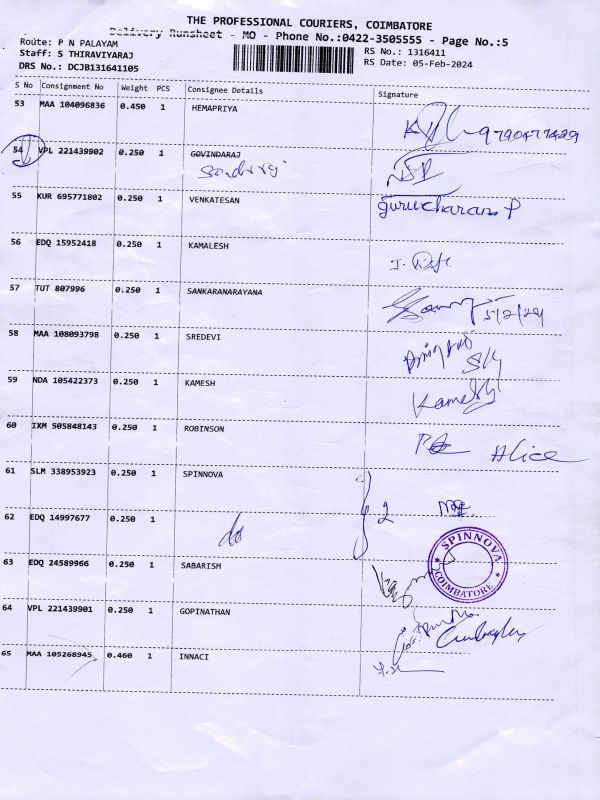 THE PROFESSIONAL COURIERS, COIMBATORE
Delivery Runsheet - MO - Phone No.:0422-3505555 - Page No.:5
Route: P N PALAYAM
Staff: S THIRAVIYARAJ
DRS No.: DCJB131641105
RS No.: 1316411
RS Date: 05-Feb-2024
S No Consignment No Weight PCS Consignee Details Signature
53 MAA 104096836 0.450 1 HEMAPRIYA
9790477429
54 VPL 221439902 0.250 1 GOVINDARAJ
55 KUR 695771802 0.250 1 VENKATESAN gurucharan P
56 EDQ 15952418 0.250 1 KAMALESH
57 TUT 807996 0.250 1 SANKARANARAYANA
5/2/24
58 MAA 108093798 0.250 1 SREDEVI
59 NDA 105422373 0.250 1 KAMESH Kamesh
60 IXM 505848143 0.250 1 ROBINSON Alice
61 SLM 338953923 0.250 1 SPINNOVA
62 EDQ 14997677 0.250 1 do 2
SPINNOVA
COIMBATORE
63 EDQ 24589966 0.250 1 SABARISH
64 VPL 221439901 0.250 1 GOPINATHAN
65 MAA 105268945 0.460 1 INNACI